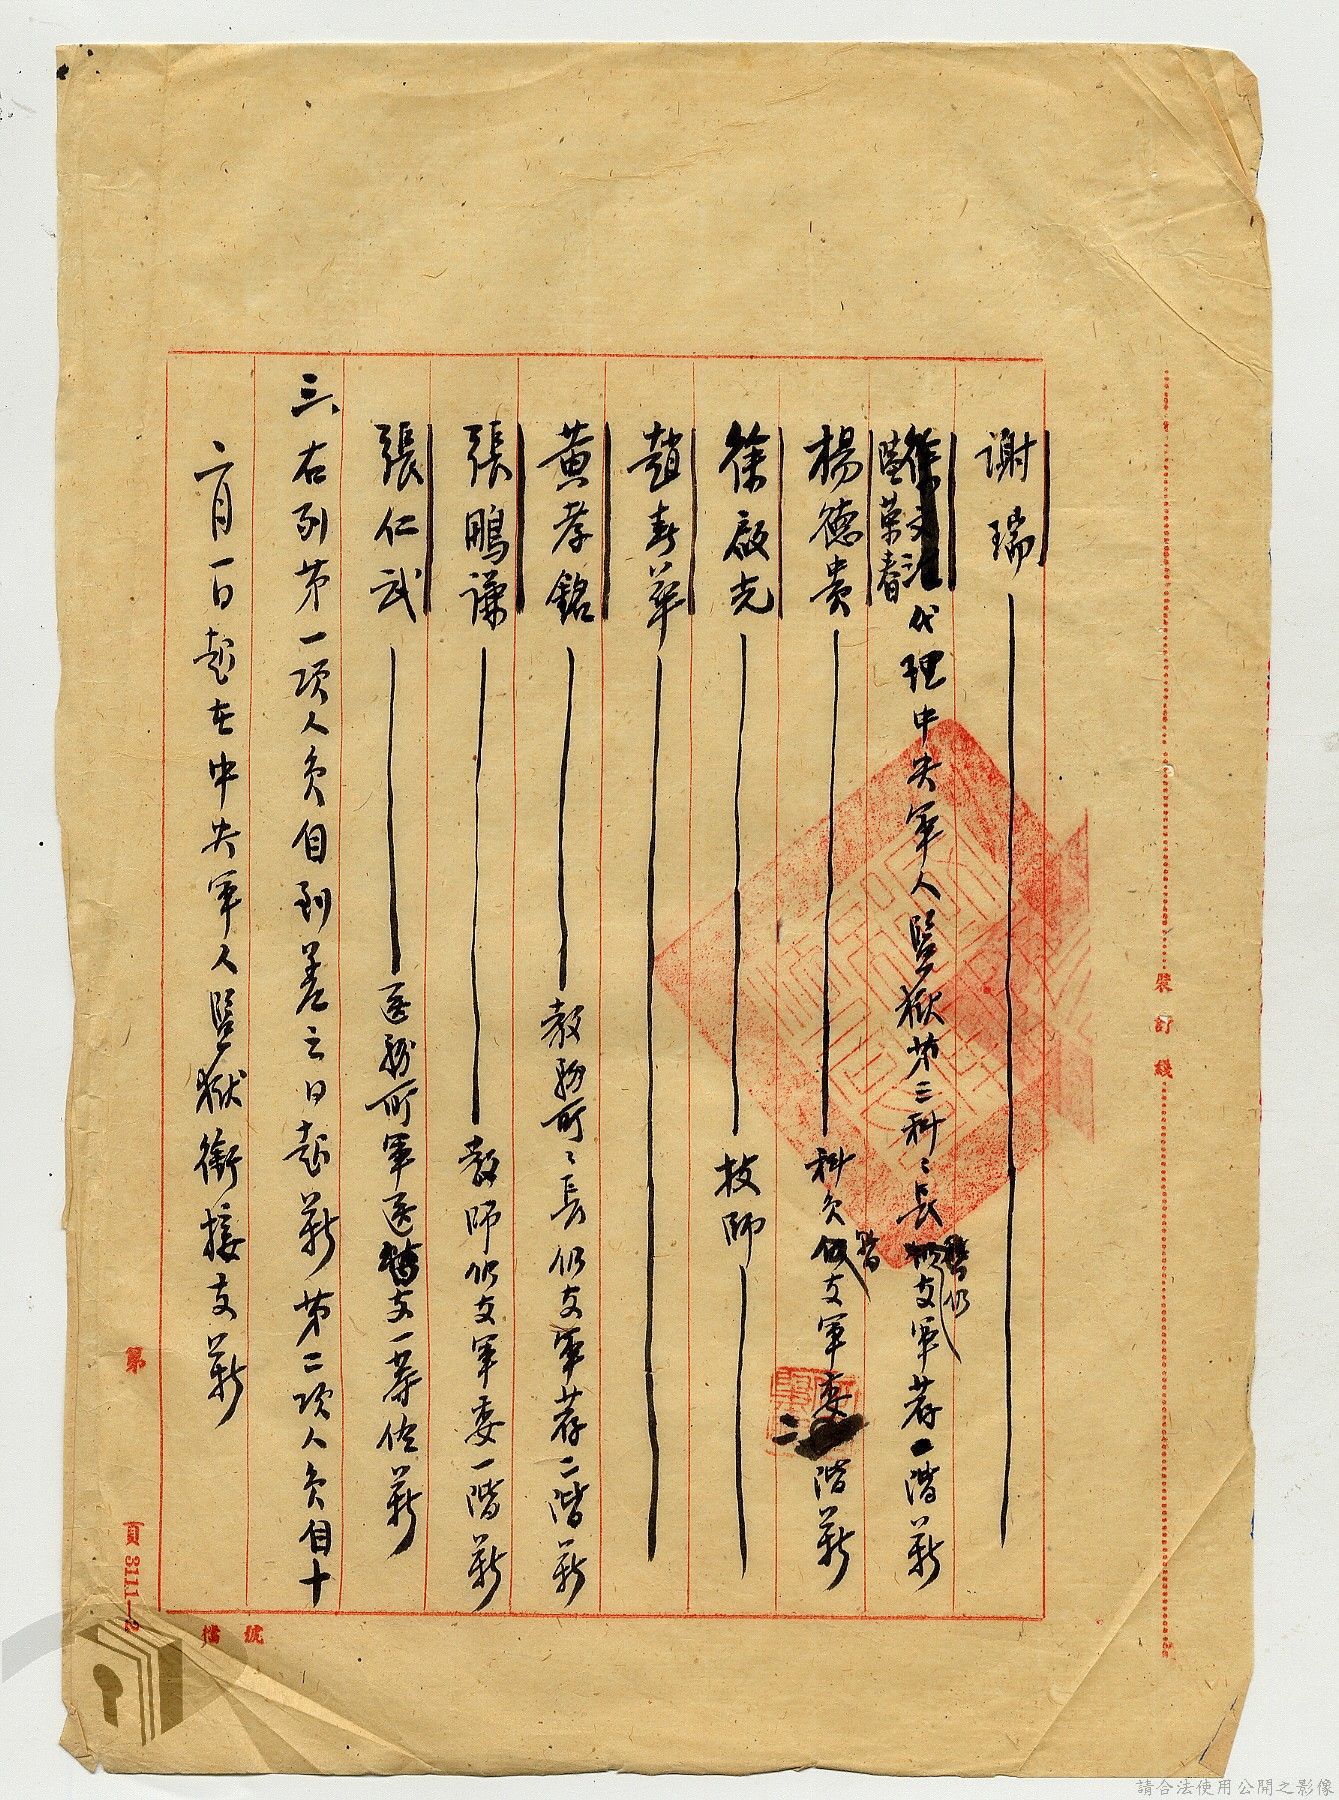 謝瑞
藍蓁春代理中央軍人監獄第三科々長暫仍支軍荐二階薪
楊德貴 科負暫支軍委二階薪
徐啟光 技師
趙春華
黃孝銘 教務所々長仍支軍荐二階薪
張鵬謙 教師仍支軍委一階薪
張仁武 医務所軍医暫支一等佐薪
三、右列第一項人負自到差之日起薪第二項人負自十
二月一日起在中央軍人監獄銜接支薪
裝訂綫
第
頁3111—2
檔號
請合法使用公開之影像